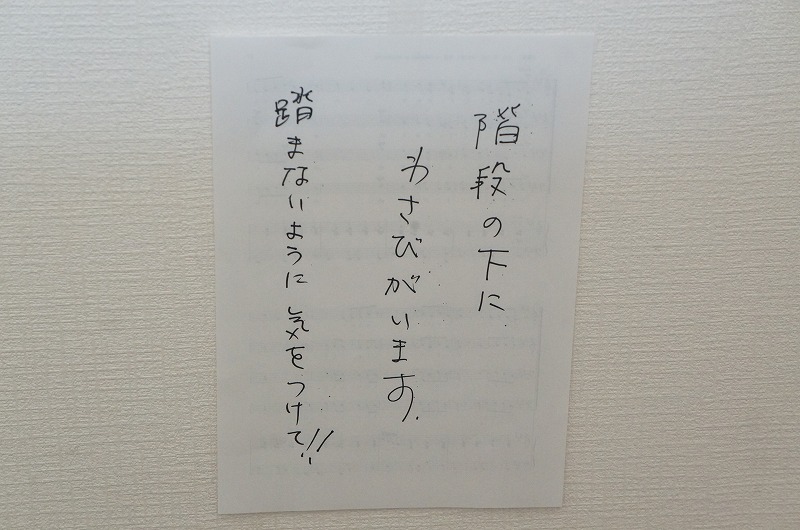 階段の下に
わさびがいます.
踏まないように気をつけて!!